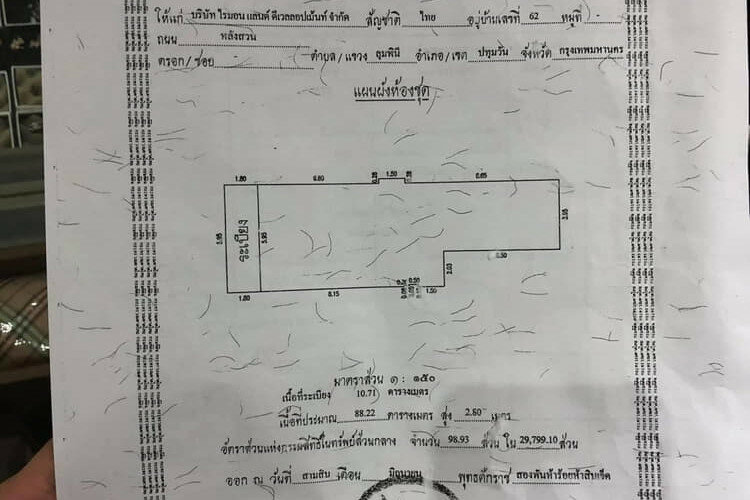 ให้แก่ บริษัท ไรมอน แลนด์ ดีเวลลอปเม้นท์ จำกัด สัญชาติ ไทย อยู่บ้านเลขที่ 62 หมู่ที่ -
ถนน หลังสวน
ตรอก/ซอย - ตำบล/แขวง ลุมพินี อำเภอ/เขต ปทุมวัน จังหวัด กรุงเทพมหานคร
แผนผังห้องชุด
1.80 6.80 1.50 6.65
5.95 ระเบียง 5.95 3.95
2.03 6.50
1.80 8.15 0.50 1.50
มาตราส่วน ๑ : ๑๕๐
เนื้อที่ระเบียง 10.71 ตารางเมตร
เนื้อที่ประมาณ 88.22 ตารางเมตร สูง 2.80 เมตร
อัตราส่วนแห่งกรรมสิทธิ์ในทรัพย์ส่วนกลาง จำนวน 98.93 ส่วน ใน 29,799.10 ส่วน
ออก ณ วันที่ สามสิบ เดือน มิถุนายน พุทธศักราช สองพันห้าร้อยห้าสิบเอ็ด